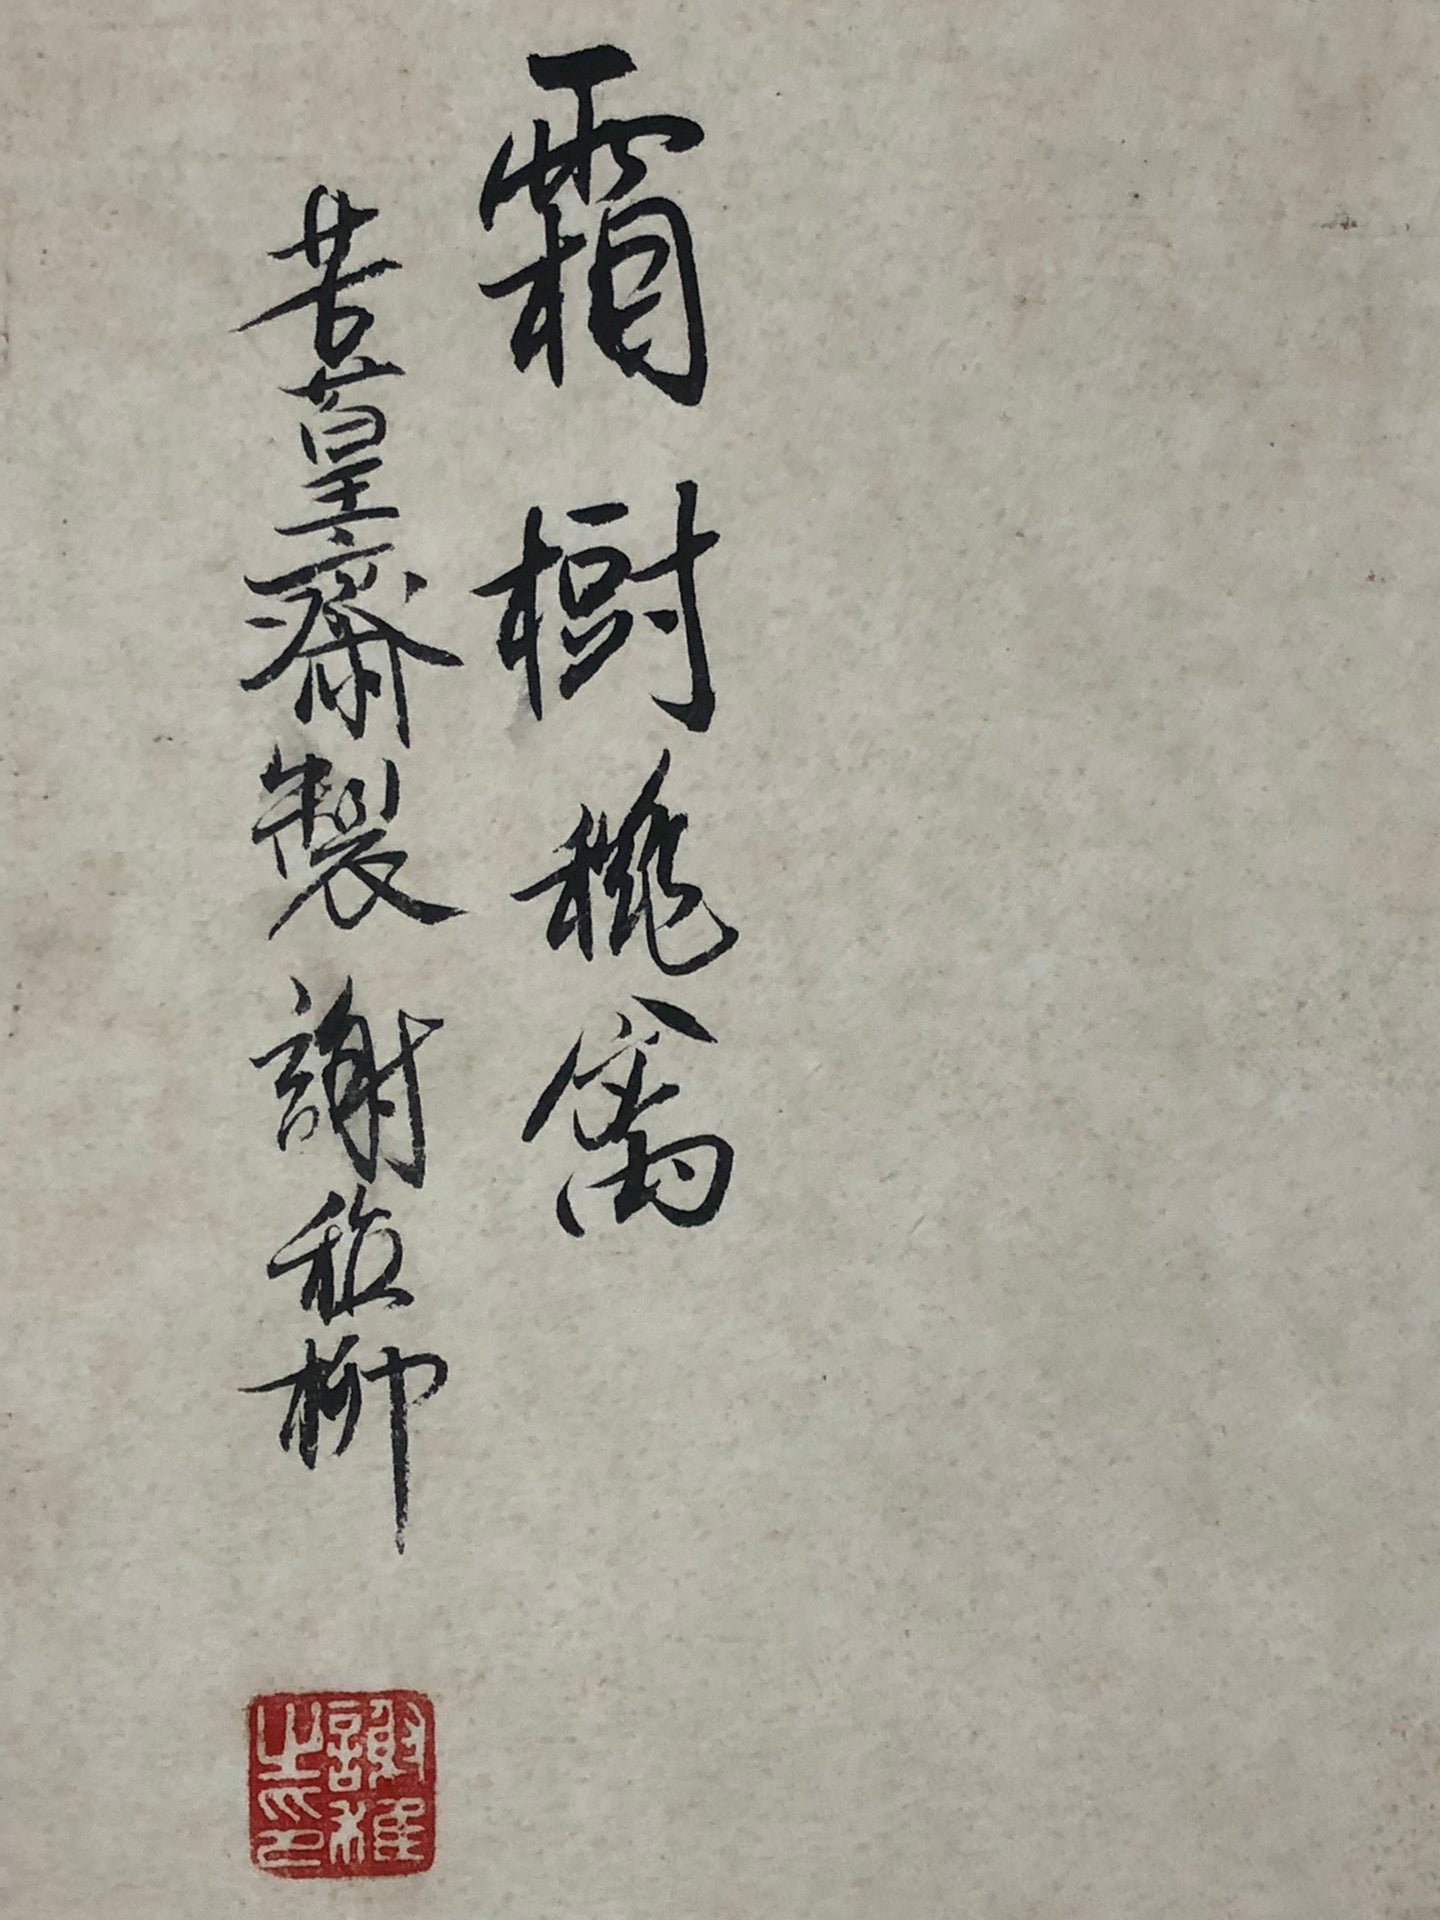 霜樹穐禽
苦篁齋製 謝稚柳
謝稚之印